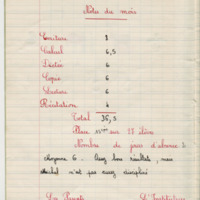 Notes du mois
Ecriture 8
Calcul 6,5
Dictée 6
Copie 6
Lecture 6
Récitation 4
Total 36,5
Place 11ème sur 27 élèves
Nombre de jours d'absence
moyenne 6 . Assez bons résultats, mais
n'est pas assez discipliné
Les Parents L'Instituteur